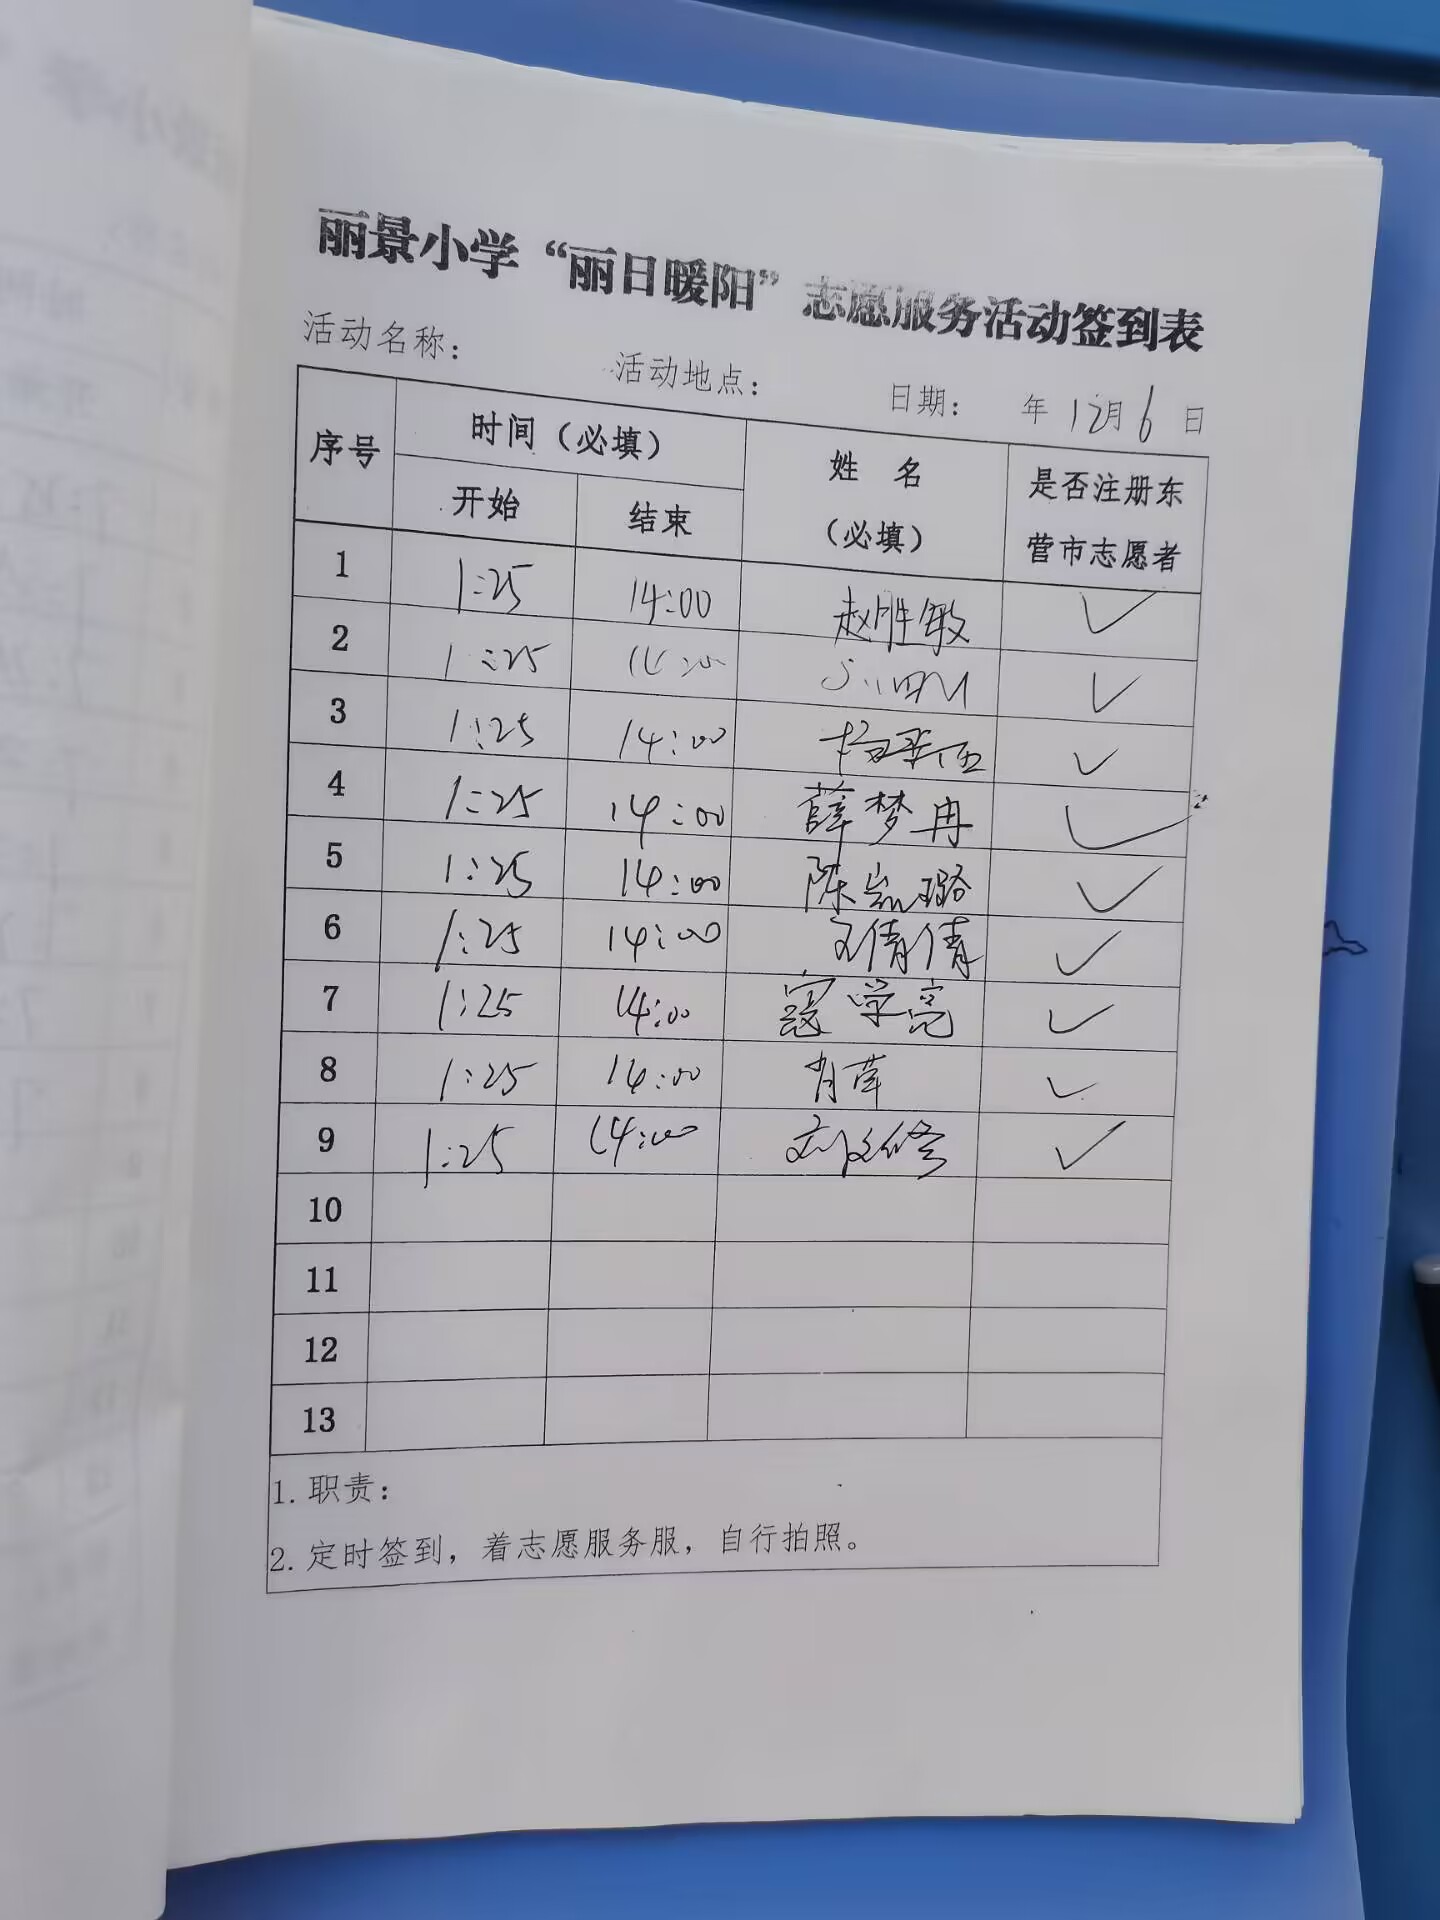 丽景小学“丽日暖阳”志愿服务活动签到表
活动名称： 活动地点： 日期： 年 12月 6 日
序号 时间（必填） 姓 名（必填） 是否注册东营市志愿者
开始 结束
1 1:25 14:00 赵胜敏 ✓
2 1:25 ✓
3 1:25 14:00 ✓
4 1:25 14:00 薛梦冉 ✓
5 1:25 14:00 陈岚璐 ✓
6 1:25 14:00 文倩倩 ✓
7 1:25 14:00 寇学亮 ✓
8 1:25 14:00 肖苹 ✓
9 1:25 14:00 刘文修 ✓
10
11
12
13
1. 职责：
2. 定时签到，着志愿服务服，自行拍照。